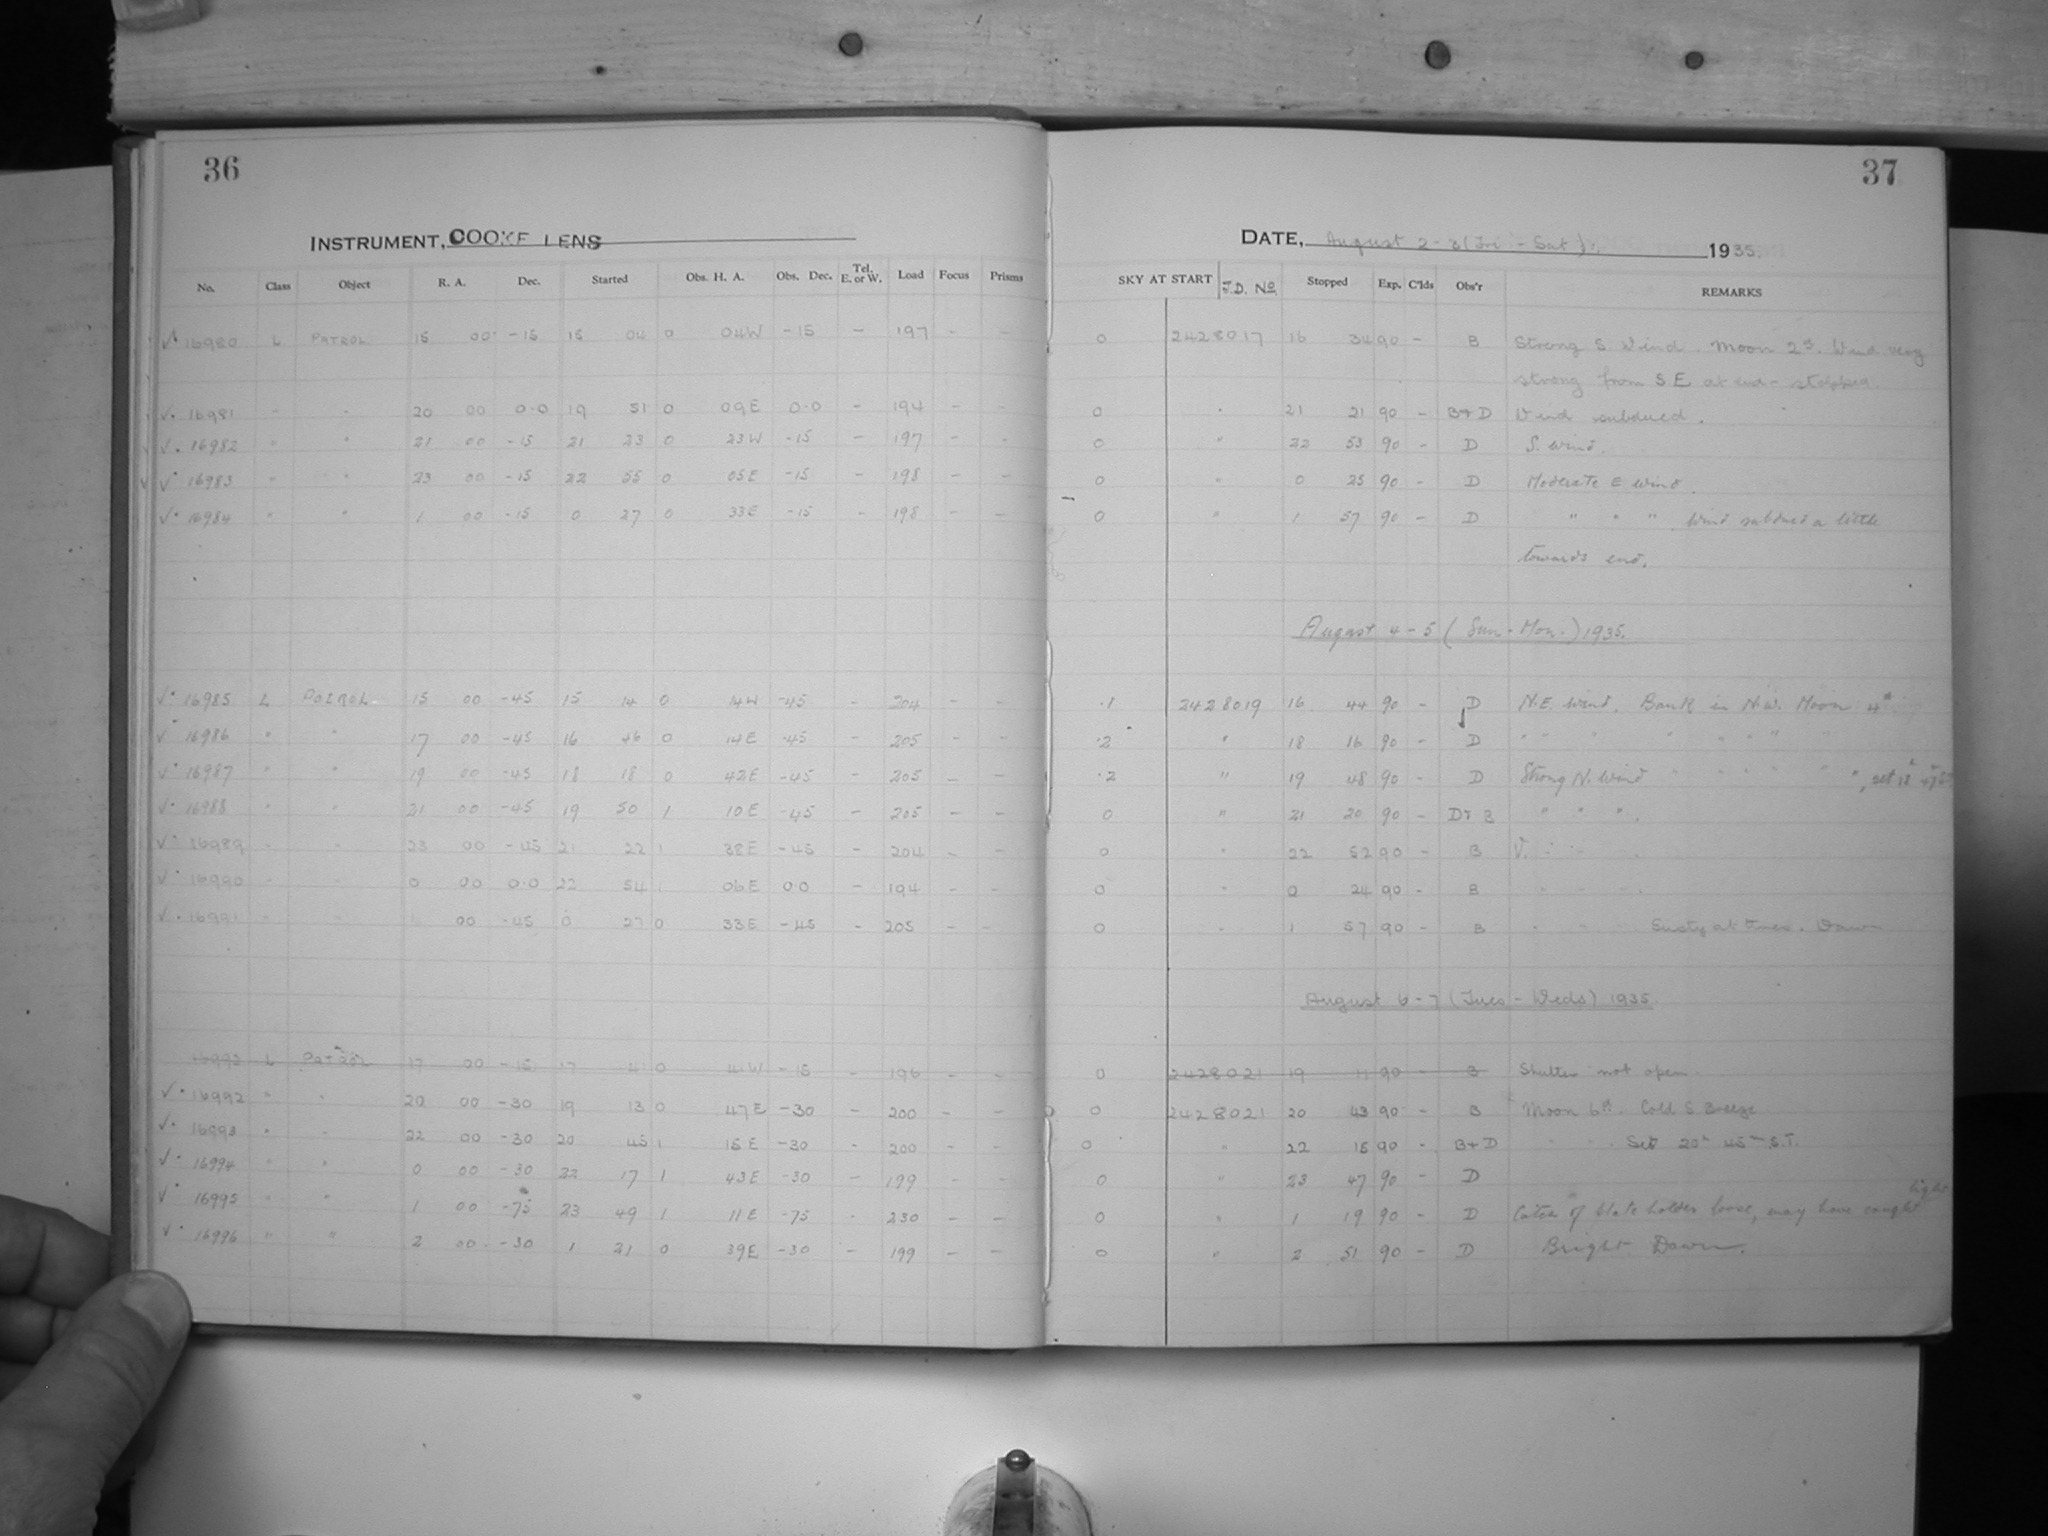 36
37
INSTRUMENT, COOKE LENS
DATE, August 2-3 (Fri - Sat). 1935.
No. Class Object R. A. Dec. Started Obs. H. A. Obs. Dec. Tel. E. or W. Load Focus Prisms SKY AT START J.D. No Stopped Exp. C'lds Obs'r REMARKS
√ 16980 L PATROL 15 00 -15 15 04 0 04W -15 - 197 - - 0 2428017 16 34 90 - B Strong S. Wind. Moon 2d. Wind very
strong from SE at end - stopped.
√. 16981 " " 20 00 0.0 19 51 0 09E 0.0 - 194 - - 0 " 21 21 90 - B+D Wind subdued.
√. 16982 " " 21 00 -15 21 23 0 23W -15 - 197 - - 0 " 22 53 90 - D S. wind.
√. 16983 " " 23 00 -15 22 55 0 05E -15 - 198 - - 0 " 0 25 90 - D Moderate E wind.
√. 16984 " " 1 00 -15 0 27 0 33E -15 - 198 - - 0 " 1 57 90 - D " " " Wind subdued a little
towards end.
August 4-5 (Sun - Mon.) 1935.
√. 16985 L PATROL 15 00 -45 15 14 0 14W -45 - 204 - - .1 2428019 16 44 90 - D N.E. wind. Bank in N.W. Moon 4d
√. 16986 " " 17 00 -45 16 46 0 14E -45 - 205 - - .2 " 18 16 90 - D " " " " " " "
√. 16987 " " 19 00 -45 18 18 0 42E -45 - 205 - - .2 " 19 48 90 - D Strong N. Wind " " " " ", set 18h 47m
√. 16988 " " 21 00 -45 19 50 1 10E -45 - 205 - - 0 " 21 20 90 - D+B " " ".
√. 16989 " " 23 00 -45 21 22 1 38E -45 - 204 - - 0 " 22 52 90 - B V. " " .
√. 16990 " " 0 00 0.0 22 54 1 06E 0.0 - 194 - - 0 " 0 24 90 - B " " " .
√. 16991 " " 1 00 -45 0 27 0 33E -45 - 205 - - 0 " 1 57 90 - B " " Gusty at times. Dawn
August 6-7 (Tues - Weds) 1935
16992 L PATROL 17 00 -15 17 41 0 41W -15 - 196 - - 0 2428021 19 11 90 - B Shutter not open.
√. 16992 " " 20 00 -30 19 13 0 47E -30 - 200 - - 0 2428021 20 43 90 - B Moon 6d. Cold S. Breeze
√. 16993 " " 22 00 -30 20 45 1 15E -30 - 200 - - 0 " 22 15 90 - B+D " " . Set 20h 45m S.T.
√. 16994 " " 0 00 -30 22 17 1 43E -30 - 199 - - 0 " 23 47 90 - D
√. 16995 " " 1 00 -75 23 49 1 11E -75 - 230 - - 0 " 1 19 90 - D Catch of plate holder loose, may have caught light
√. 16996 " " 2 00 -30 1 21 0 39E -30 - 199 - - 0 " 2 51 90 - D Bright Dawn.